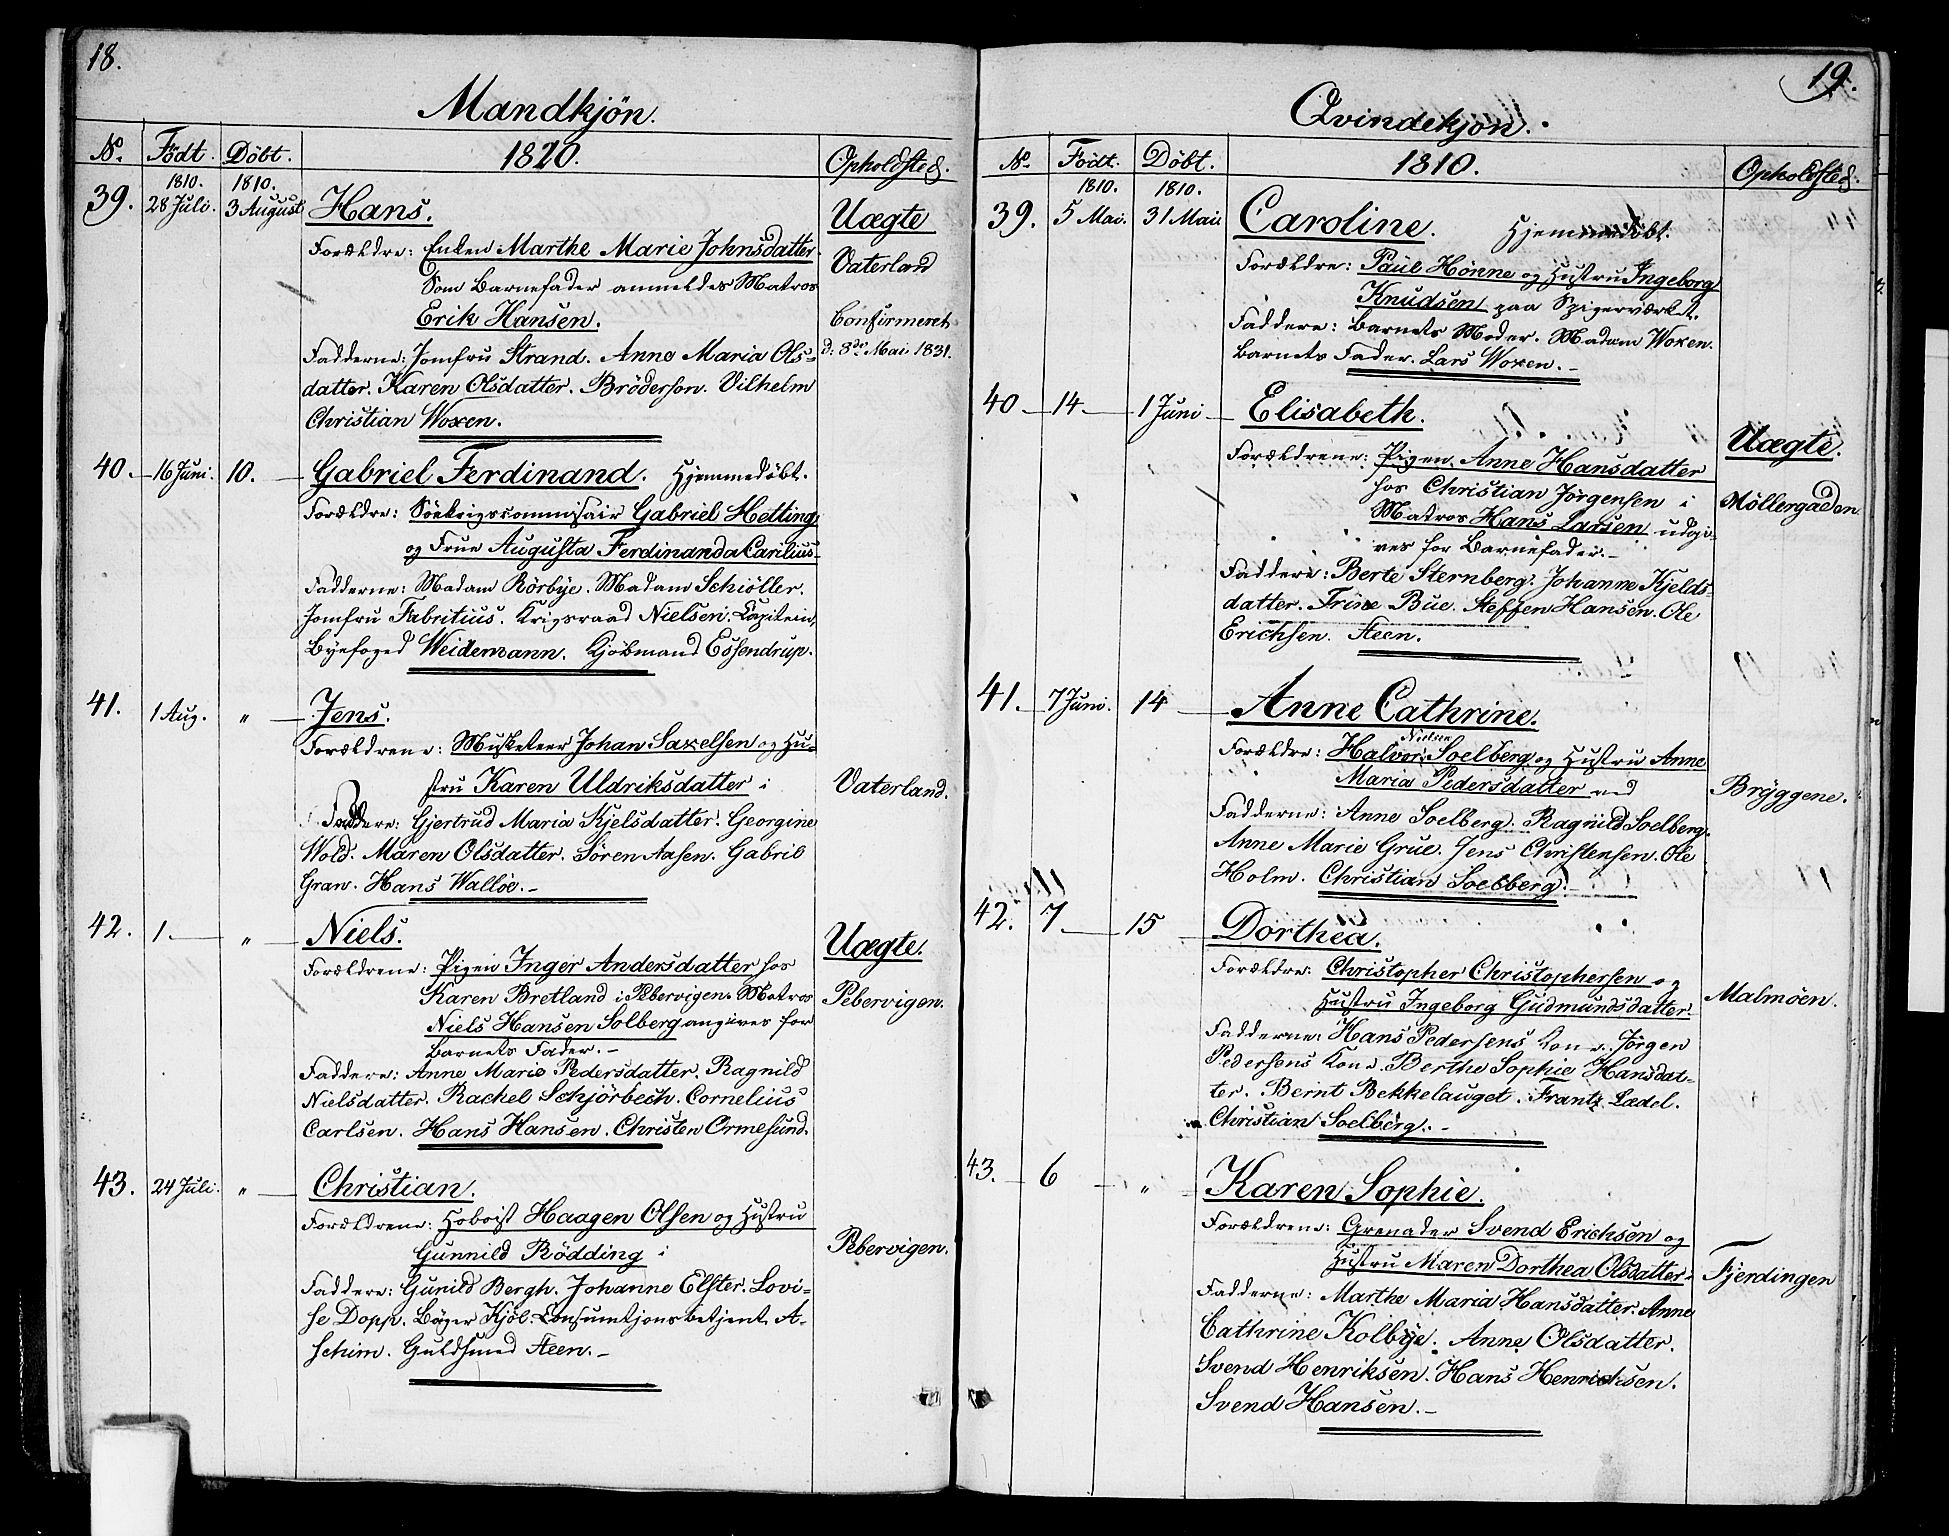 18.
Mandkjön.
No. Födt. Döbt. 1810. Opholdsted.
1810. 1810.
39. 28 Juli. 3 August Hans. Uægte
Forældre: Enken Marthe Marie Johnsdatter. Vaterland
Som Barnefader anmeldes Matros
Erik Hansen. Confirmeret
Fadderne: Jomfru Strand. Anne Maria Ols- d: 8de Mai 1831.
datter. Karen Olsdatter. Bröderson. Vilhelm
Christian Woxen.
40. 16 Juni. 10. Gabriel Ferdinand. Hjemmedöbt.
Forældre: Söekrigscommisair Gabriel Hetting
og Frue Augusta Ferdinanda Carilius.
Fadderne: Madam Rörbye. Madam Schiöller.
Jomfru Fabritius. Krigsraad Nielsen. Capitein,
Byefoged Weidemann. Kjöbmand Essendrup.
41. 1 Aug. " Jens.
Forældrene: Musketeer Johan Saxelsen og Hu-
stru Karen Uldriksdatter i Vaterland.
Faddere: Gjertrud Maria Kjelsdatter. Georgine
Wold. Maren Olsdatter. Sören Aasen. Gabriel
Gran. Hans Wallöe.-
42. 1 " Niels. Uægte.
Forældrene: Pigen Inger Andersdatter hos
Karen Bretland i Pebervigen. Matros Pebervigen.
Niels Hansen Solberg angives for
Barnets Fader.-
Faddere: Anne Marie Pedersdatter. Ragnild
Nielsdatter. Rachel Schjörbech. Cornelius
Carlsen. Hans Hansen. Christen Ormesund.
43. 24 Juli. " Christian.
Forældrene: Hoboist Haagen Olsen og Hustru
Gunnild Rödding i Pebervigen.
Faddere: Gunild Bergh. Johanne Elster. Lovi-
se Dopp. Böger Kjöl. Consumtjonsbetjent A-
schim. Guldsmed Steen.-
19.
Qvindekjön.
No. Födt. Döbt. 1810. Opholdsted.
1810. 1810.
39. 5 Mai. 31 Mai Caroline. Hjemmedöbt.
Forældre: Paul Hönne og Hustru Ingeborg
Knudsen paa Spigerværket.
Faddere: Barnets Moder. Madam Woxen.
Barnets Fader. Lars Woxen.-
40 14 1 Juni Elisabeth. Uægte.
Forældrene: Pigen Anne Hansdatter
hos Christian Jörgensen i Möllergaden
Matros Hans Larsen udgi-
ves for Barnefader.-
Faddere: Berte Sternberg. Johanne Kjelds-
datter. Trine Bue. Steffen Hansen. Ole
Erichsen. Steen.
41. 7 Juni. 14 Anne Cathrine.
Nielsen
Forældre: Halvor Soelberg og Hustru Anne
Maria Pedersdatter ved Bryggene.
Fadderne: Anne Soelberg. Ragnild Soelberg.
Anne Marie Grue. Jens Christensen. Ole
Holm. Christian Soelberg.-
42. 7 15 Dorthea.
Forældre: Christopher Christophersen og
Hustru Ingeborg Gudmundsdatter. Malmöen.
Fadderne: Hans Pedersens Kone. Jörgen
Pedersens Kone. Berthe Sophie Hansdat-
ter. Bernt Bekkelauget. Frantz Ladel.
Christian Soelberg.-
43. 6 " Karen Sophie.
Forældrene: Grenader Svend Erichsen og
Hustru Maren Dorthea Olsdatter. Fjerdingen
Fadderne: Marthe Maria Hansdatter. Anne
Cathrine Kolbye. Anne Olsdatter.
Svend Henriksen. Hans Henrichsen.
Svend Hansen.-